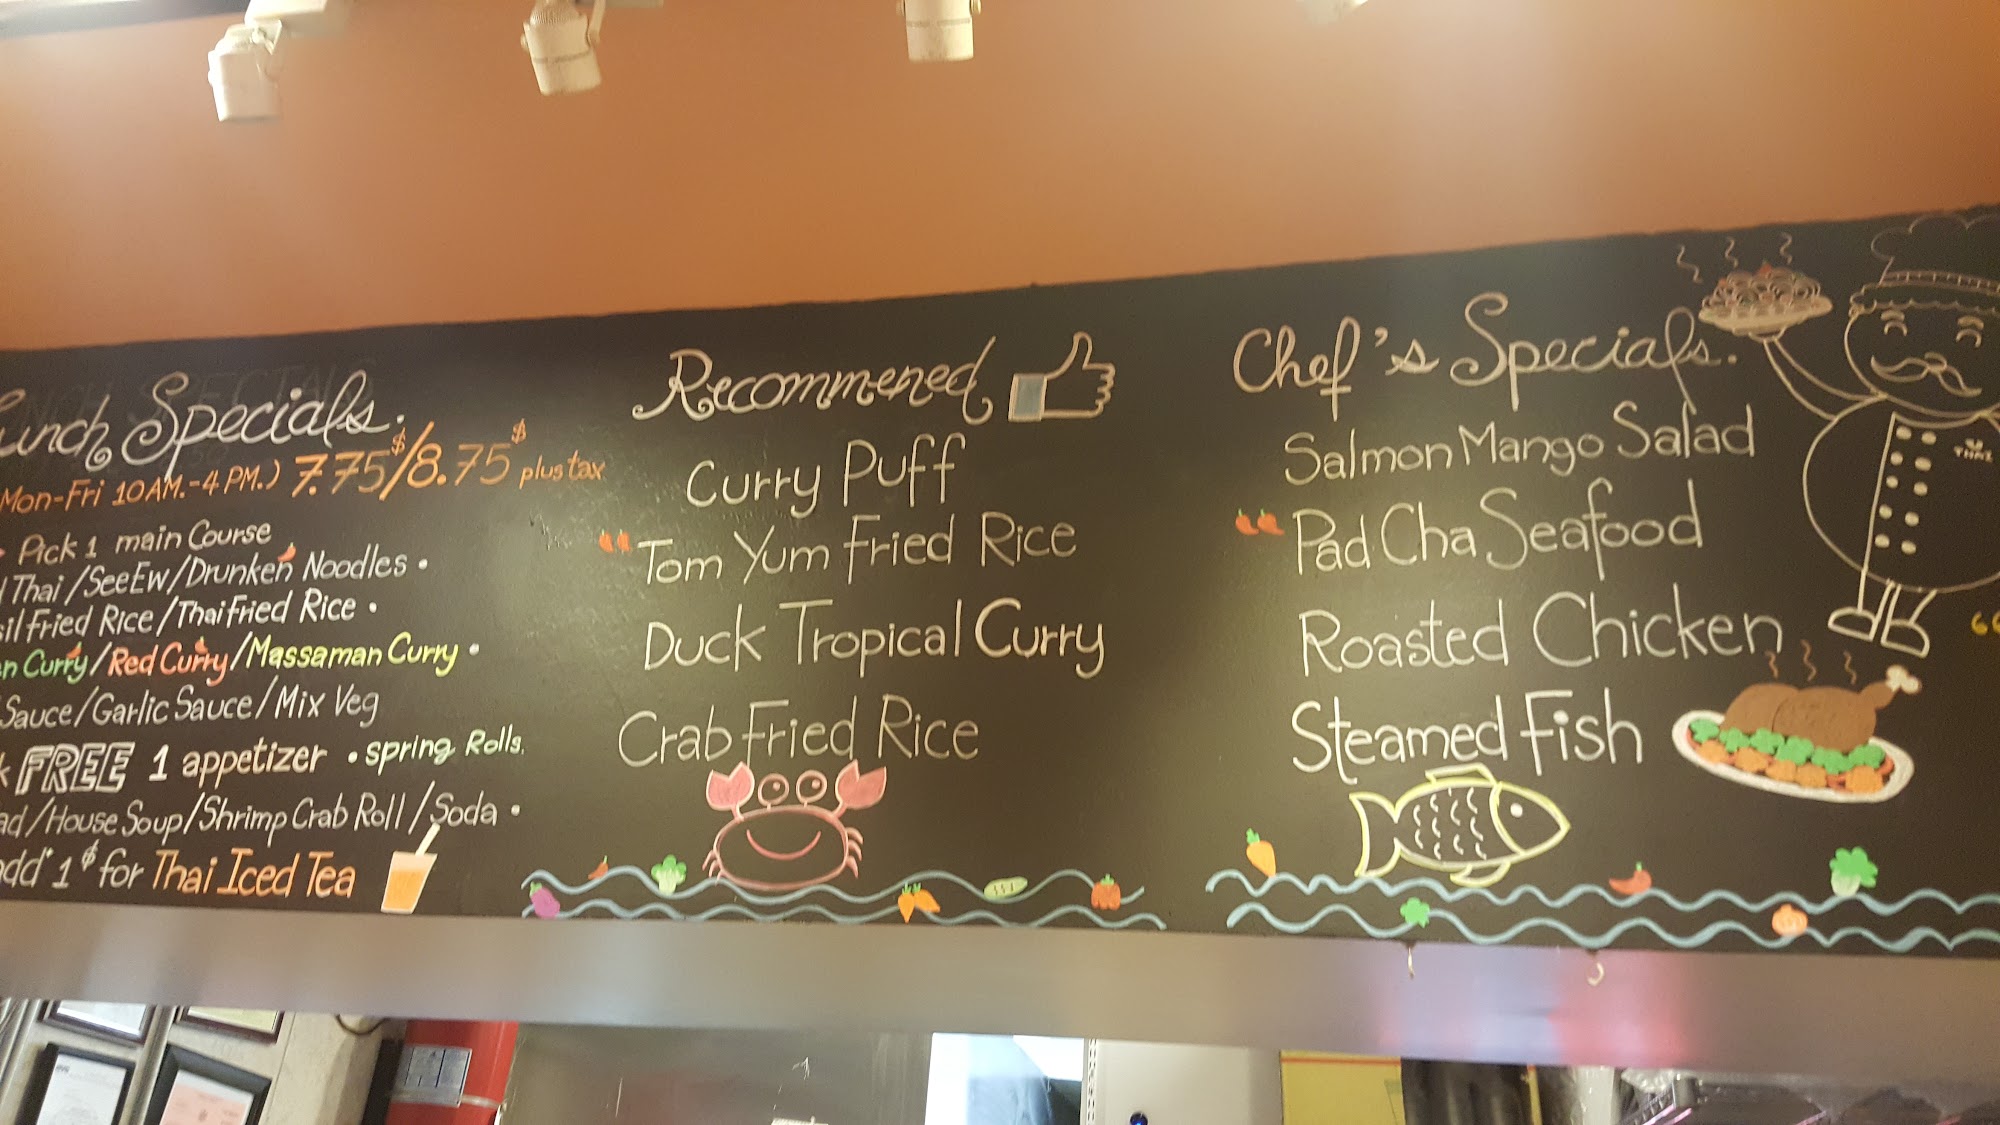 Lunch Specials.
Mon-Fri 10AM.-4PM.) 7.75$/8.75$ plus tax
Pick 1 main Course
Thai/SeeEw/Drunken Noodles •
sil Fried Rice/Thai Fried Rice •
n Curry/Red Curry/Massaman Curry •
Sauce/Garlic Sauce/Mix Veg
k FREE 1 appetizer • spring Rolls.
ad/House Soup/Shrimp Crab Roll/Soda •
add 1$ for Thai Iced Tea
Recommened
Curry Puff
Tom Yum Fried Rice
Duck Tropical Curry
Crab Fried Rice
Chef's Specials.
Salmon Mango Salad
Pad Cha Seafood
Roasted Chicken
Steamed Fish
THAI